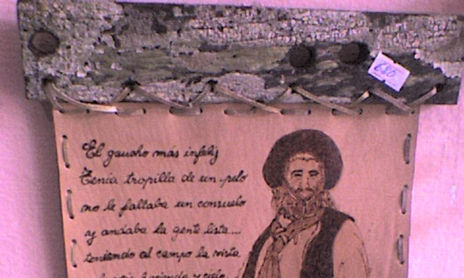 El gaucho mas infeliz
Tenía tropilla de un pelo
no le faltaba un consuelo
y andaba la gente lista...
tendiendo al campo la vista